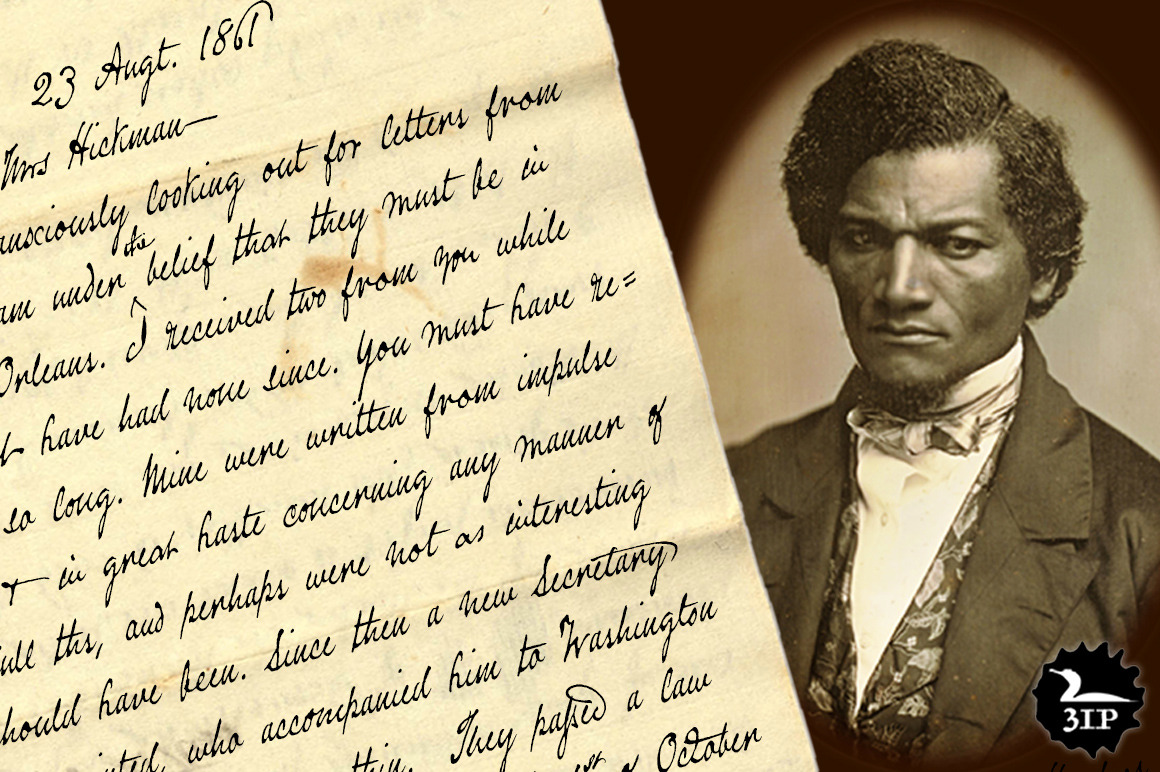 23 Augt. 1861
Mrs Hickman—
anxiously looking out for letters from
am under the belief that they must be in
Orleans. I received two from you while
have had none since. You must have re=
so long. Mine were written from impulse
in great haste concerning any manner of
and perhaps were not as interesting
should have been. Since then a new Secretary
who accompanied him to Washington
They passed a law
October
3IP